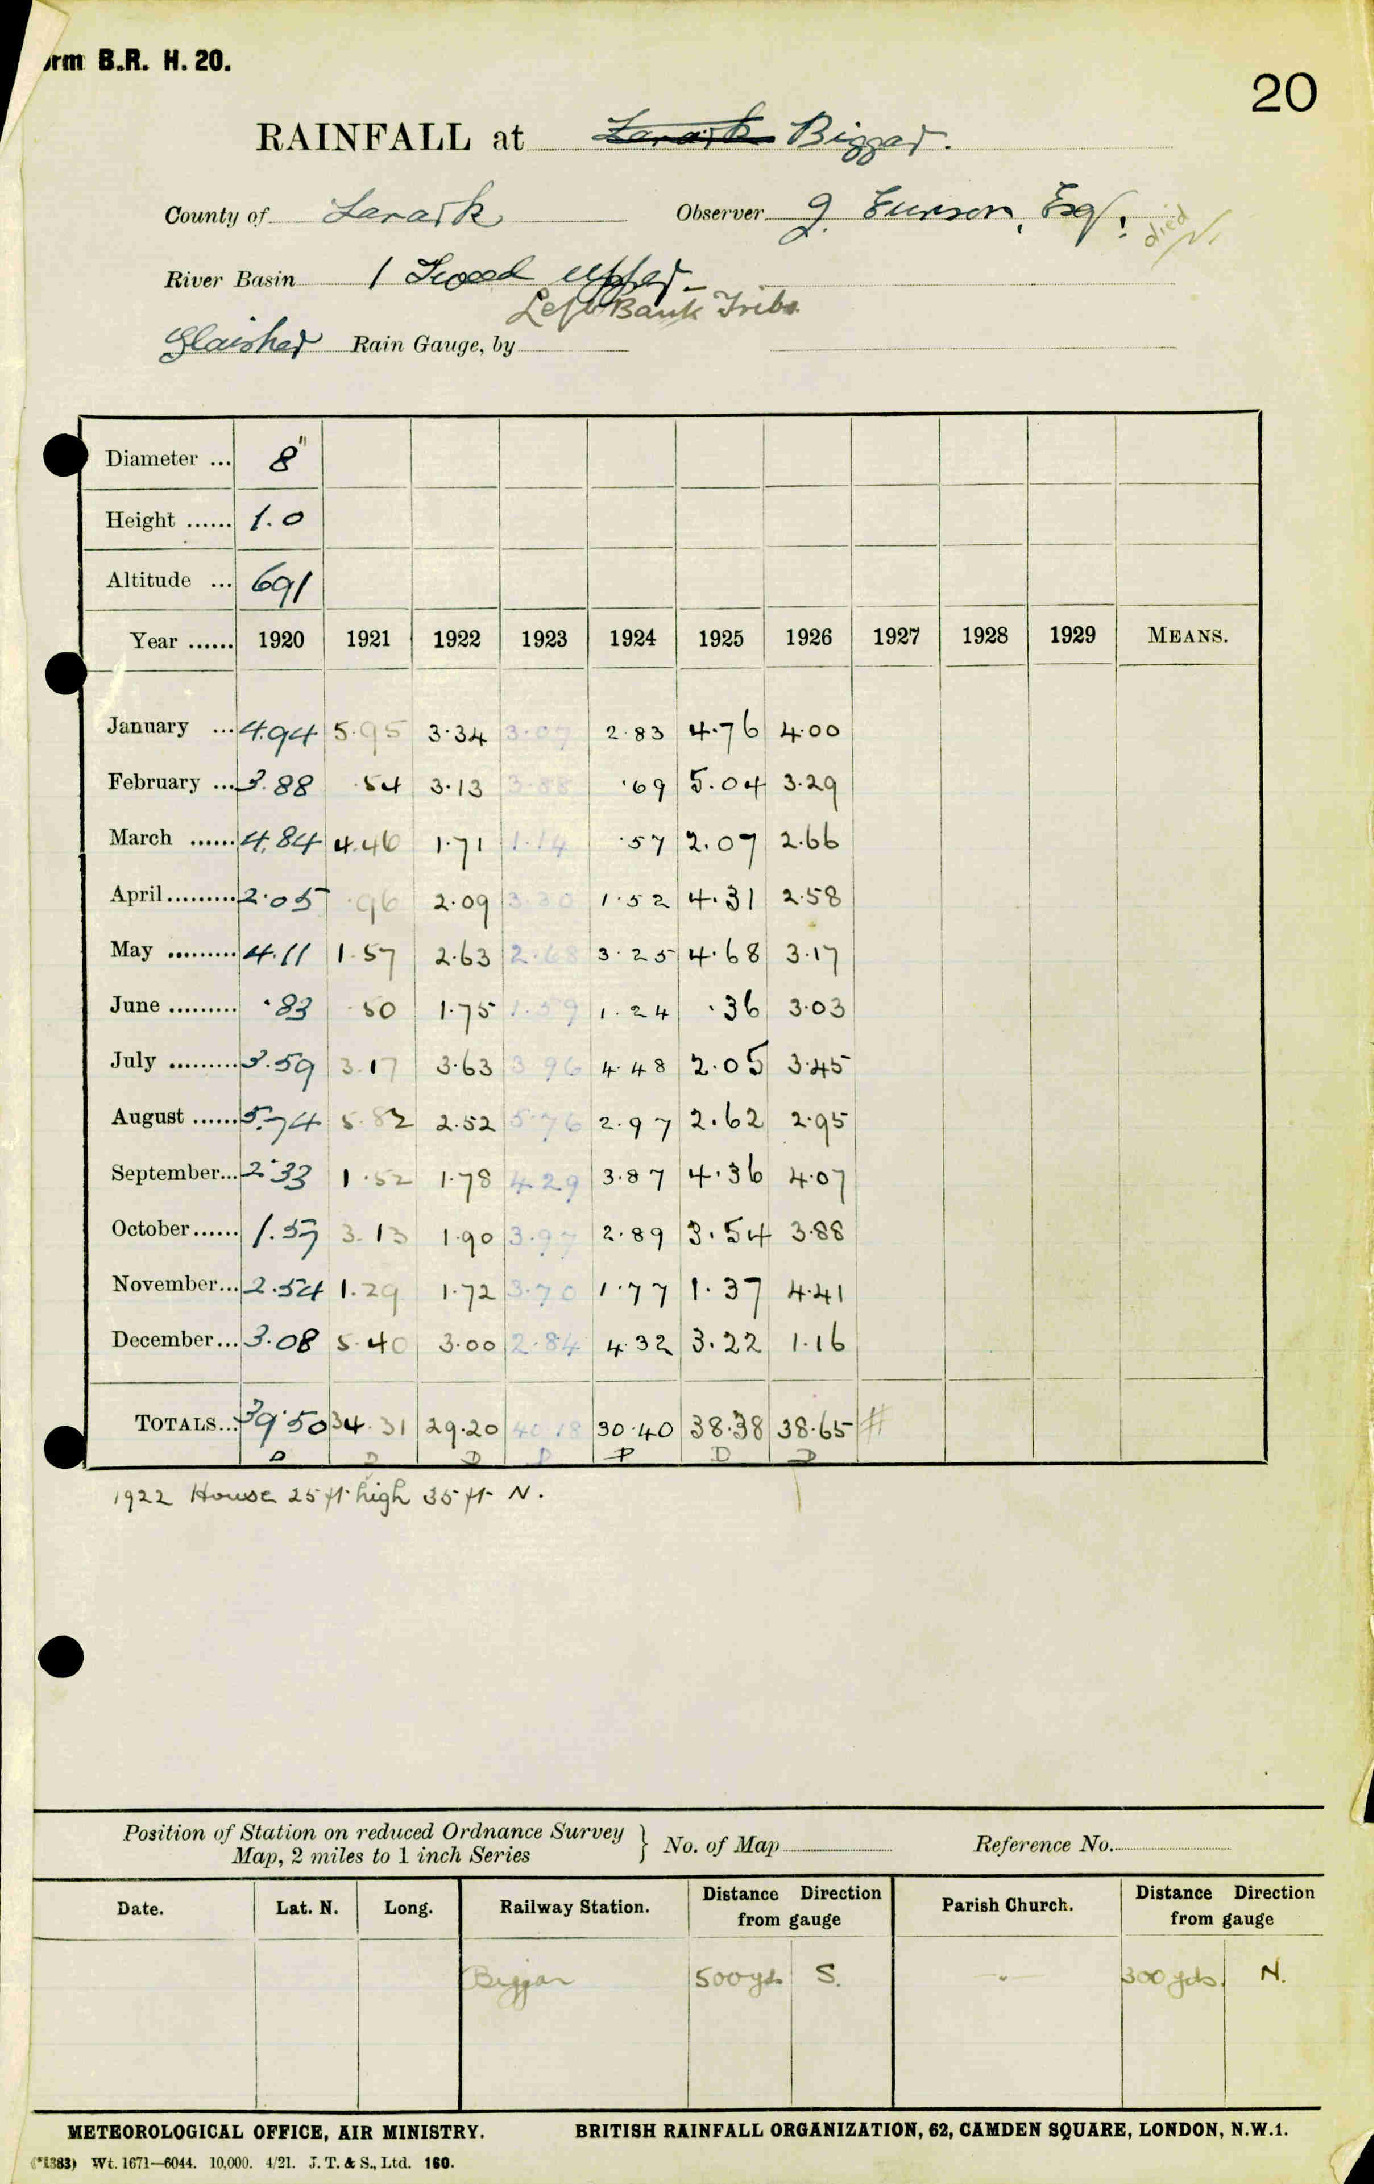 orm B.R. H. 20.
20
RAINFALL at Lanark Biggar.
County of Lanark Observer J. Eunson, Esq. died
River Basin 1 Tweed upper
Left Bank Tribs
Glaisher Rain Gauge, by
Diameter ... 8"
Height ...... 1.0
Altitude ... 691
Year ...... 1920 1921 1922 1923 1924 1925 1926 1927 1928 1929 MEANS.
January ... 4.94 5.95 3.34 3.07 2.83 4.76 4.00
February ... 3.88 .54 3.13 3.88 .69 5.04 3.29
March ...... 4.84 4.46 1.71 1.14 .57 2.07 2.66
April ......... 2.05 .96 2.09 3.30 1.52 4.31 2.58
May ......... 4.11 1.57 2.63 2.68 3.25 4.68 3.17
June ......... .83 .50 1.75 1.59 1.24 .36 3.03
July ......... 3.59 3.17 3.63 3.96 4.48 2.05 3.45
August ...... 5.74 5.82 2.52 5.76 2.97 2.62 2.95
September... 2.33 1.52 1.78 4.29 3.87 4.36 4.07
October...... 1.57 3.13 1.90 3.97 2.89 3.54 3.88
November... 2.54 1.29 1.72 3.70 1.77 1.37 4.41
December... 3.08 5.40 3.00 2.84 4.32 3.22 1.16
TOTALS... 39.50 34.31 29.20 40.18 30.40 38.38 38.65 #
D D D D P D D
1922 House 25 ft high 35 ft N.
Position of Station on reduced Ordnance Survey Map, 2 miles to 1 inch Series } No. of Map Reference No.
Date. Lat. N. Long. Railway Station. Distance Direction from gauge Parish Church. Distance Direction from gauge
Biggar 500 yds S. " 300 yds. N.
METEOROLOGICAL OFFICE, AIR MINISTRY. BRITISH RAINFALL ORGANIZATION, 62, CAMDEN SQUARE, LONDON, N.W.1.
(*1383) Wt. 1671—6044. 10,000. 4/21. J. T. & S., Ltd. 160.